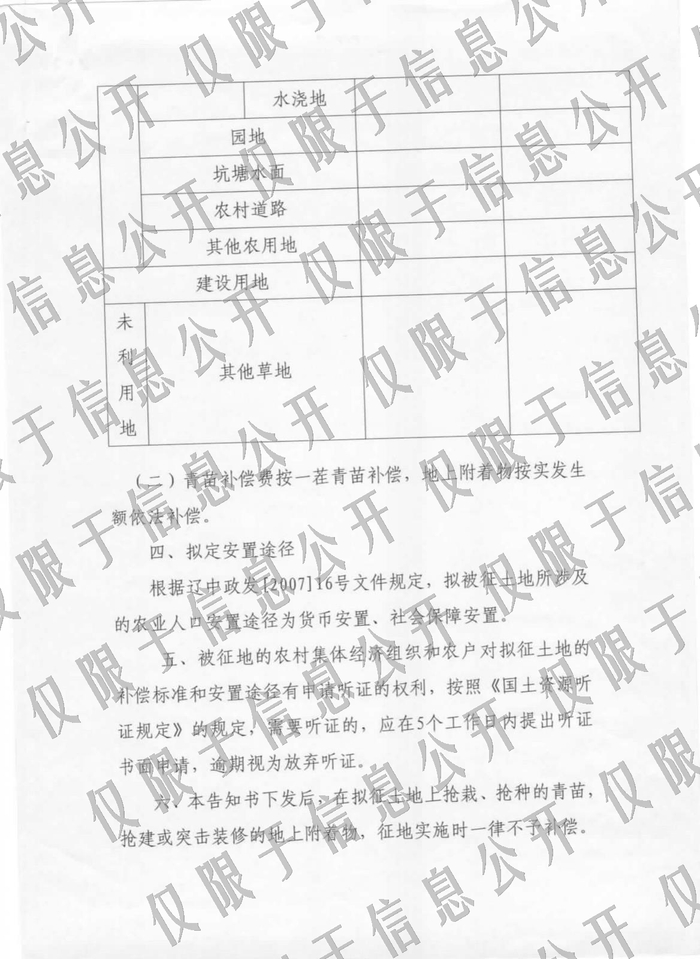 水浇地
园地
坑塘水面
农村道路
其他农用地
建设用地
未利用地
其他草地
（二）青苗补偿费按一茬青苗补偿，地上附着物按实发生
额依法补偿。
四、拟定安置途径
根据辽中政发[2007]16号文件规定，拟被征土地所涉及
的农业人口安置途径为货币安置、社会保障安置。
五、被征地的农村集体经济组织和农户对拟征土地的
补偿标准和安置途径有申请听证的权利，按照《国土资源听
证规定》的规定，需要听证的，应在5个工作日内提出听证
书面申请，逾期视为放弃听证。
六、本告知书下发后，在拟征土地上抢栽、抢种的青苗，
抢建或突击装修的地上附着物，征地实施时一律不予补偿。
仅限于信息公开